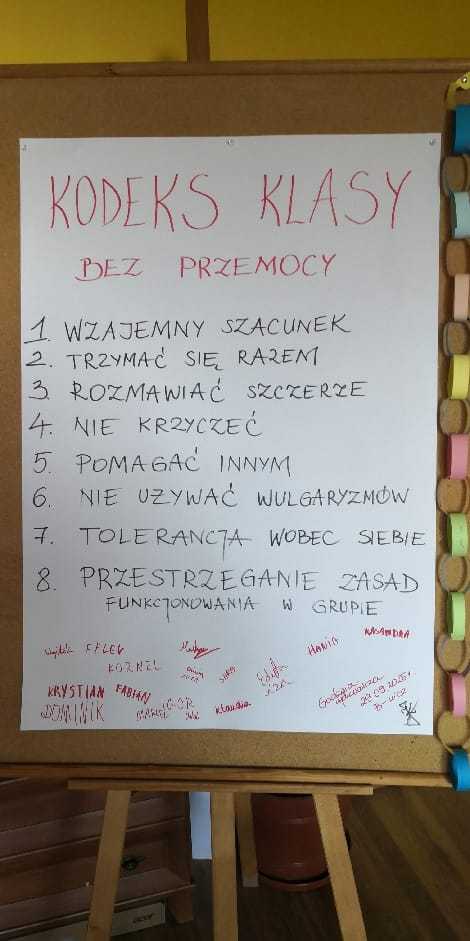 KODEKS KLASY
BEZ PRZEMOCY
1. WZAJEMNY SZACUNEK
2. TRZYMAĆ SIĘ RAZEM
3. ROZMAWIAĆ SZCZERZE
4. NIE KRZYCZEĆ
5. POMAGAĆ INNYM
6. NIE UŻYWAĆ WULGARYZMÓW
7. TOLERANCJA WOBEC SIEBIE
8. PRZESTRZEGANIE ZASAD
FUNKCJONOWANIA W GRUPIE
HANIA
KORNEL
KRYSTIAN FABIAN
DOMINIK IGOR Klaudia
Godzina
wychowawcza